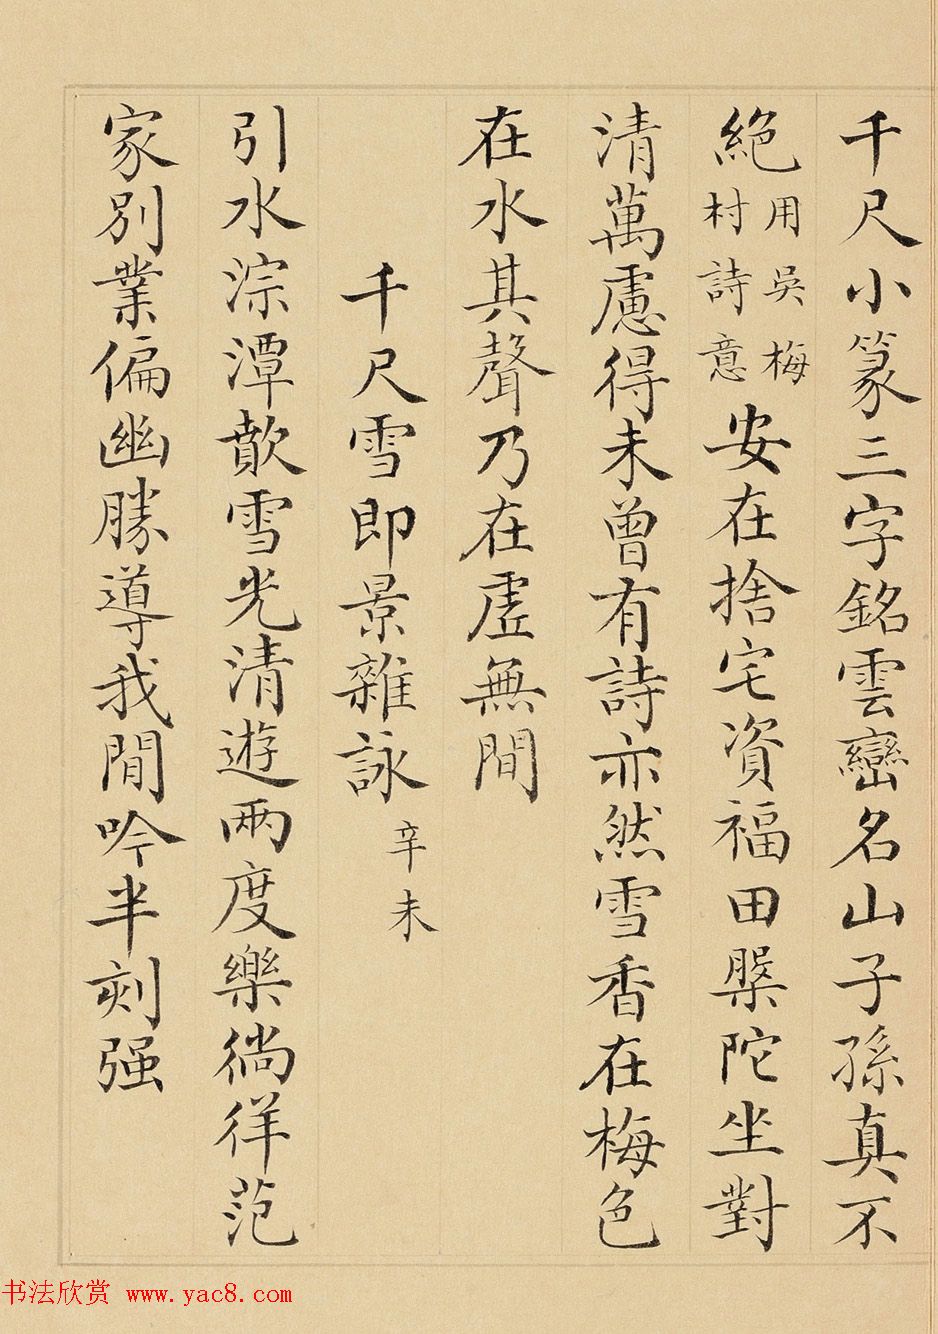 千尺小篆三字銘雲巒名山子孫真不
絕用吳梅村詩意安在捨宅資福田槃陀坐對
清萬慮得未曾有詩亦然雪香在梅色
在水其聲乃在虛無間
千尺雪即景雜詠辛未
引水淙潭歕雪光清遊兩度樂徜徉范
家別業偏幽勝導我閒吟半刻强
书法欣赏 www.yac8.com